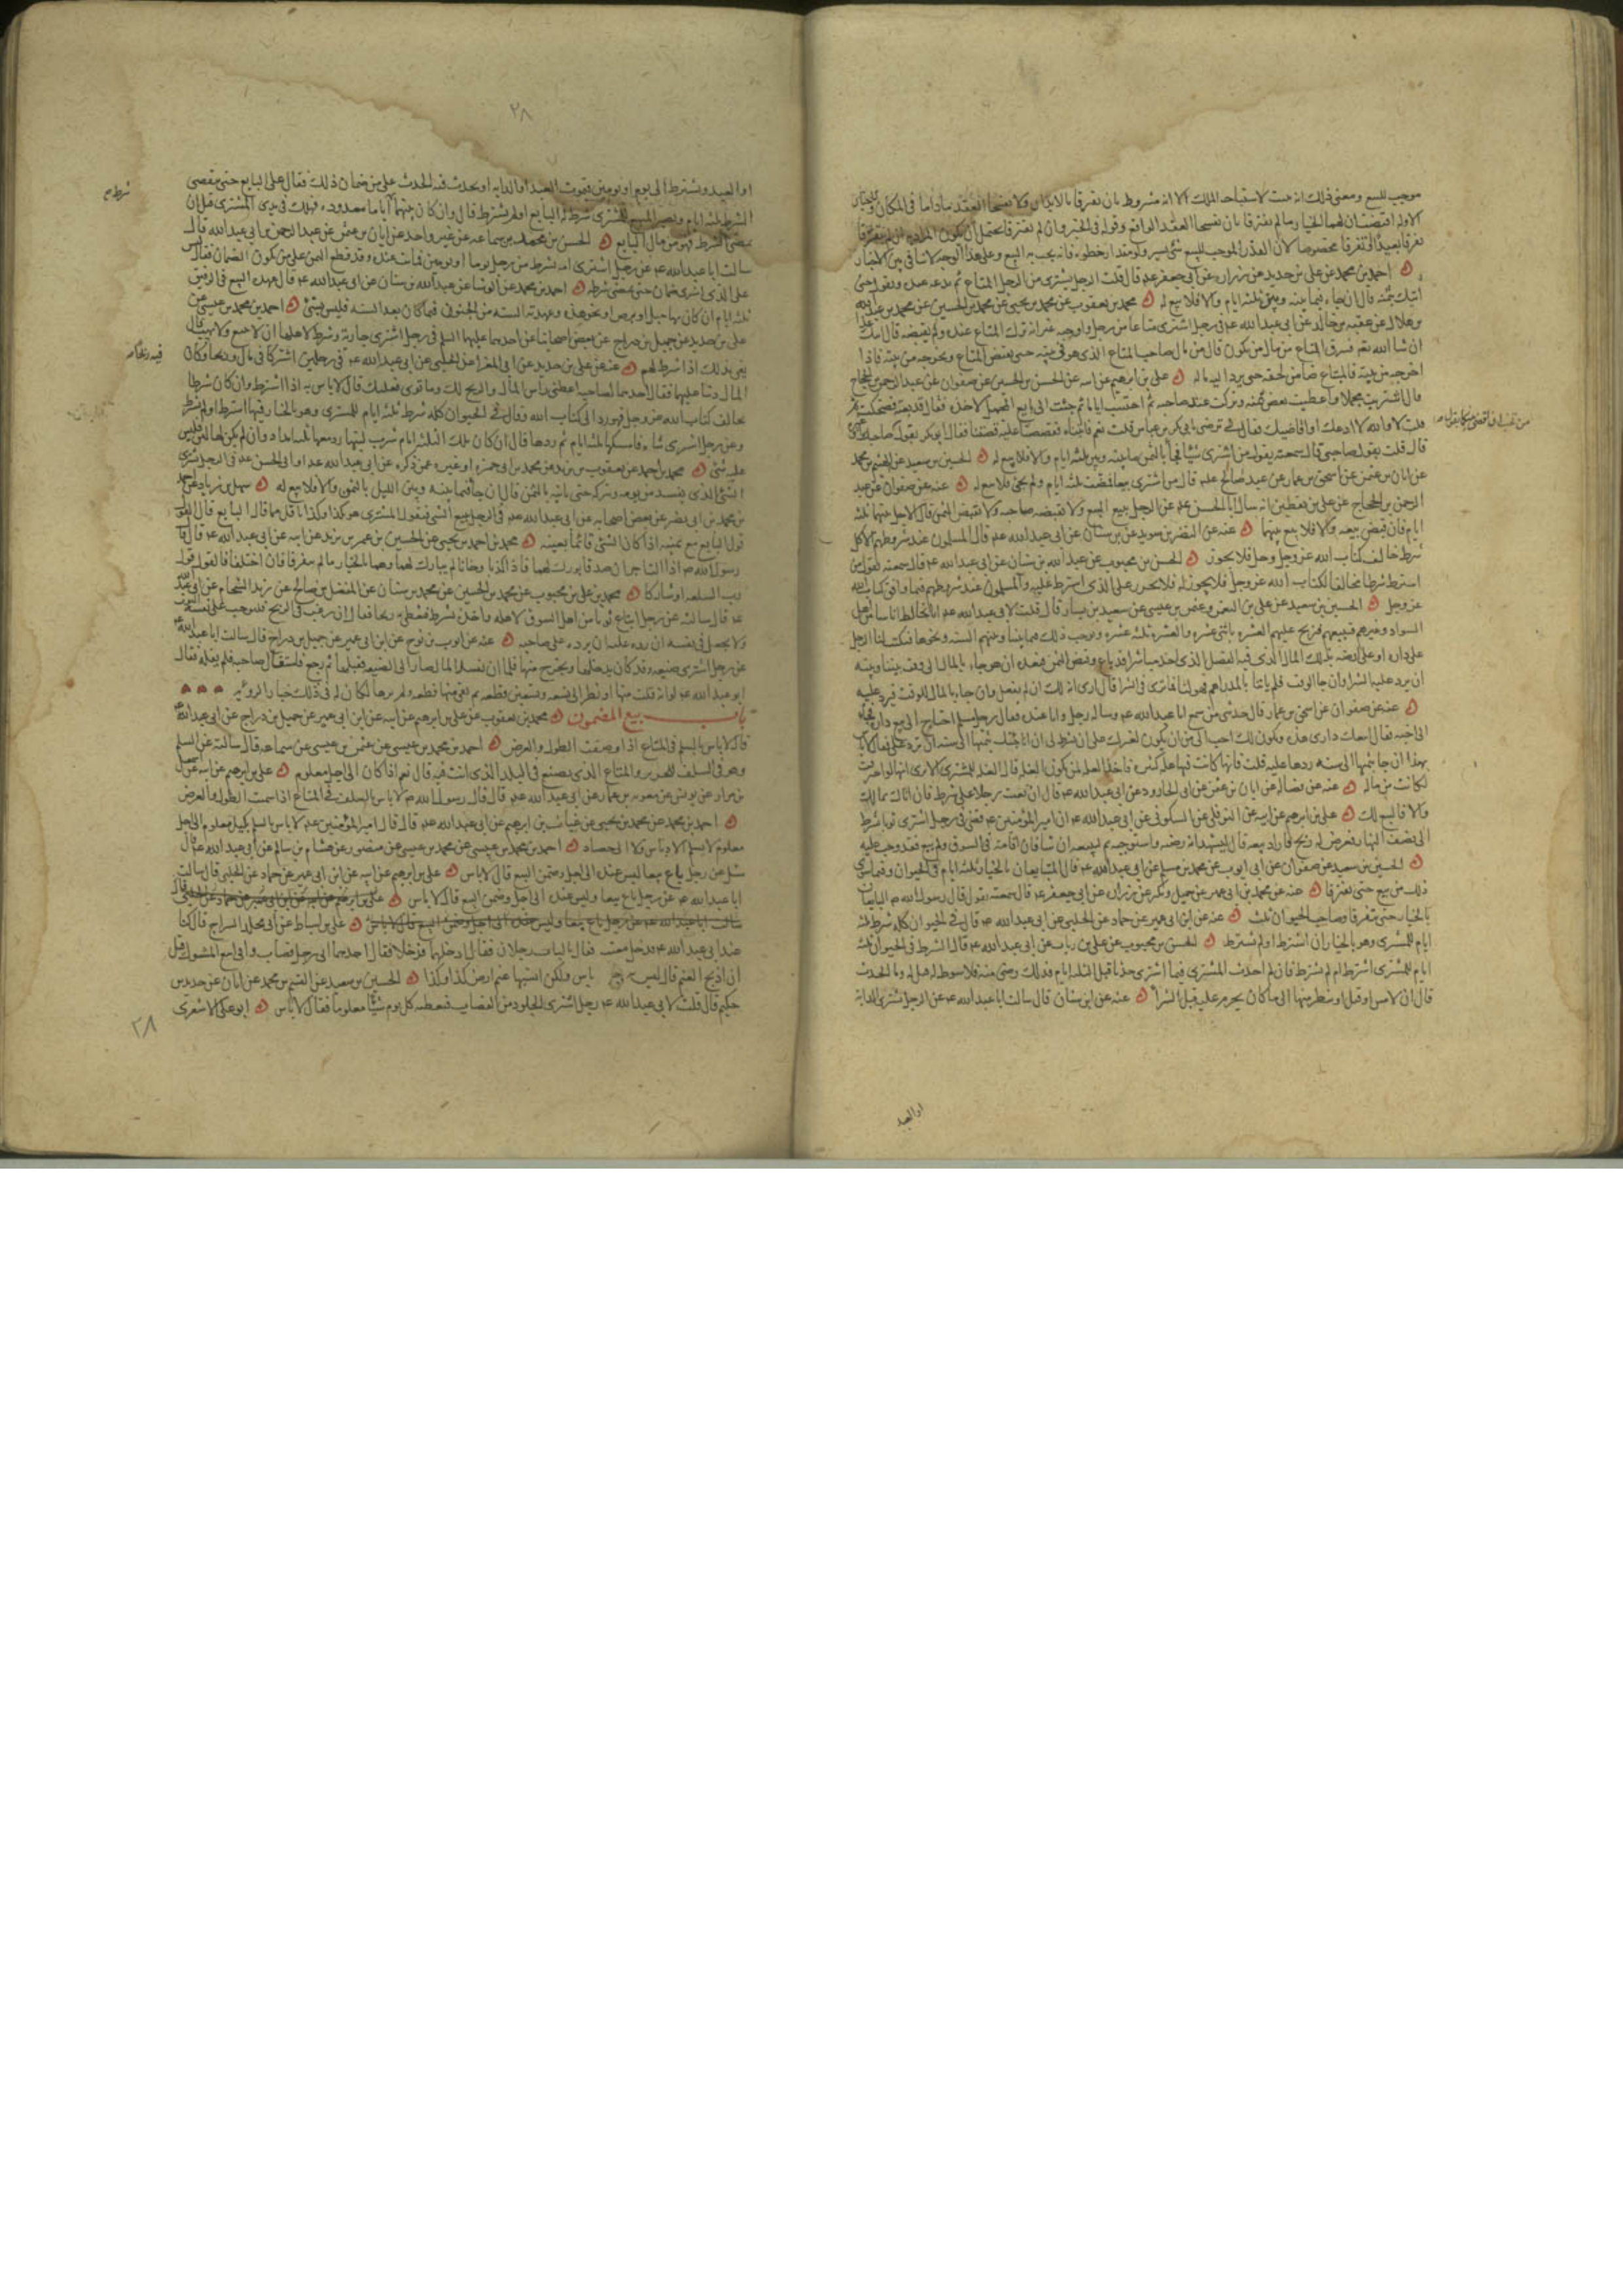 موجب للبيع ومعنى ذلك انه سبب لاستباحه الملك الا انه مشروط بان يفترقا بالابدان ولا يفسخا العقد ماداما في المكان
الاوله اقتضت ان لهما الخيار ما لم يفترقا بان يفسخا العقد الواقع وقوله في الخبر وان لم يفترقا يحتمل ان يكون المراد به
تفرقا بعيدا او تفرقا مخصوصا لان القدر الموجب للبيع شئ يسير ولو مقدار خطوه فانه يجب به البيع وعلى هذا الوجه لا تنافي بين الاخبار
احمد بن محمد عن علي بن حديد عن زراره عن ابي جعفر عه قال قلت الرجل يشتري من الرجل المتاع ثم يدعه عنده ويقول حتى
اتيك بثمنه قال ان جاء فيما بينه وبين ثلثه ايام والا فلا بيع له محمد بن يعقوب عن محمد بن يحيى عن محمد بن الحسين عن محمد بن عبد الله
بن هلال عن عقبه بن خالد عن ابي عبد الله عه في رجل اشترى متاعا من رجل واوجبه غير انه ترك المتاع عنده ولم يقبضه قال اتيك غدا
ان شا الله نعم فسرق المتاع من مال من يكون قال من مال صاحب المتاع الذي هو في بيته حتى يقبض المتاع ويخرجه من بيته فاذا
اخرجه من بيته فالمبتاع ضامن لحقه حتى يرد اليه ماله علي بن ابرهيم عن ابيه عن الحسن بن الحسين عن صفوان عن عبد الرحمن بن الحجاج
قال اشتريت محملا واعطيت بعض ثمنه وتركت عند صاحبه ثم احتبست اياما ثم جئت الى بايع المحمل لاخذه فقال قد بعته فضحكت ثم
قلت لا والله لا ادعك او اقاضيك فقال لي ترضى بابي بكر بن عياش قلت نعم فاتيناه فقصصنا عليه قصتنا فقال ابو بكر بقول
قال قلت بقول صاحبي قال سمعته يقول من اشترى شيئا فجا بالثمن ما بينه وبين ثلثه ايام والا فلا بيع له الحسين بن سعيد عن الهيثم بن محمد
عن ابان بن عثمن عن اسحق بن عمار عن عبد صالح عه قال من اشترى بيعا فمضت ثلثه ايام ولم يجئ فلا بيع له عنه عن صفوان عن عبد
الرحمن بن الحجاج عن علي بن يقطين انه سال ابا الحسن عه عن الرجل يبيع البيع ولا يقبضه صاحبه ولا يقبض الثمن قال الاجل بينهما ثلثه
ايام فان قبض بيعه والا فلا بيع بينهما عنه عن النضر بن سويد عن بن سنان عن ابي عبد الله عه قال المسلمون عند شروطهم الا كل
شرط خالف كتاب الله عز وجل فلا يجوز الحسن بن محبوب عن عبد الله بن سنان عن ابي عبد الله عه قال سمعته يقول من
اشترط شرطا مخالفا لكتاب الله عز وجل فلا يجوز له ولا يجوز على الذي اشترط عليه والمسلمون عند شروطهم فيما وافق كتاب الله
عز وجل الحسين بن سعيد عن علي بن النعمن وعثمن بن عيسى عن سعيد بن يسار قال قلت لابي عبد الله عه انا نخالط اناسا من اهل
السواد وغيرهم فنبيعهم ونربح عليهم العشره باثني عشره والعشره ثلثه عشره ونوجب ذلك فيما بيننا وبينهم السنه ونحوها فيكتب لنا الرجل
على داره او على ارضه بذلك المال الذي فيه الفضل الذي اخذ منا شراء قد باع وقبض الثمن فنعده ان هو جاء بالمال الى وقت بيننا وبينه
ان نرد عليه الشرا وان جا الوقت فلم ياتنا بالدراهم فهو لنا فما ترى في الشرا قال ارى انه لك ان لم يفعل وان جاء بالمال للوقت فرد عليه
عنه عن صفوان عن اسحق بن عمار قال حدثني من سمع ابا عبد الله عه وساله رجل وانا عنده فقال رجل مسلم احتاج الى بيع داره فجاء
الى اخيه فقال ابيعك داري هذه وتكون لك احب الي من ان تكون لغيرك على ان تشترط لي ان انا جئتك بثمنها الى سنه ان ترد علي فقال لا باس
بهذا ان جا بثمنها الى سنه ردها عليه قلت فانها كانت فيها غله كثيره فاخذ الغله لمن تكون الغله قال الغله للمشتري الا ترى انها لو احترقت
لكانت من ماله عنه عن فضاله عن ابان بن عثمن عن ابي الجارود عن ابي عبد الله عه قال ان بعت رجلا على شرط فان اتاك بمالك
والا فالبيع لك علي بن ابرهيم عن ابيه عن النوفلي عن السكوني عن ابي عبد الله عه ان امير المؤمنين عه قضى في رجل اشترى ثوبا بشرط
الى نصف النهار فعرض له ربح فاراد بيعه قال ليشهد انه رضيه واستوجبه ثم ليبيعه ان شا فان اقامه في السوق ولم يبع فقد وجب عليه
الحسين بن سعيد عن صفوان عن ابي ايوب عن محمد بن مسلم عن ابي عبد الله عه قال المتبايعان بالخيار ثلثه ايام في الحيوان وفيما سوى
ذلك من بيع حتى يفترقا عنه عن محمد بن ابي عمير عن جميل وبكير عن زراره عن ابي جعفر عه قال سمعته يقول قال رسول الله ص البايعان
بالخيار حتى يتفرقا وصاحب الحيوان ثلث عنه عن ابن ابي عمير عن حماد عن الحلبي عن ابي عبد الله عه قال في الحيوان كله شرط ثلثه
ايام للمشتري وهو بالخيار ان اشترط او لم يشترط الحسن بن محبوب عن علي بن رباب عن ابي عبد الله عه قال الشرط في الحيوان ثلثه
ايام للمشتري اشترط ام لم يشترط فان احدث المشتري فيما اشترى حدثا قبل الثلثه ايام فذلك رضى منه فلا شرط له قيل له وما الحدث
قال ان لامس او قبل او نظر منها الى ما كان يحرم عليه قبل الشرا عنه عن ابن سنان قال سالت ابا عبد الله عه عن الرجل يشتري الدابة
او العبد
٢٨
او العبد ويشترط الى يوم او يومين فيموت العبد او الدابه او يحدث فيه الحدث على من ضمان ذلك فقال على البايع حتى ينقضي
الشرط ثلثه ايام ويصير المبيع للمشتري شرط له البايع او لم يشترط قال وان كان بينهما اياما معدوده فهلك في يدي المشتري قبل ان
يمضي الشرط فهو من مال البايع الحسن بن محمد بن سماعه عن غير واحد عن ابان بن عثمن عن عبد الرحمن بن ابي عبد الله قال
سالت ابا عبد الله عه عن رجل اشترى امه بشرط من رجل يوما او يومين فماتت عنده وقد قطع الثمن على من يكون الضمان فقال ليس
على الذي اشترى ضمان حتى يمضي شرطه احمد بن محمد عن الوشا عن عبد الله بن سنان عن ابي عبد الله عه قال عهده البيع في الرقيق
ثلثه ايام ان كان بها حبل او برص او نحو هذه وعهدته السنه من الجنون فما كان بعد السنه فليس بشئ احمد بن محمد بن عيسى عن
علي بن حديد عن جميل بن دراج عن بعض اصحابنا عن احدهما عليهما السلم في رجل اشترى جارية وشرط لاهلها ان لا يبيع ولا يهب قال
يفي بذلك اذا شرط لهم عنه عن علي بن حديد عن ابي المغرا عن الحلبي عن ابي عبد الله عه في رجلين اشتركا في مال وربحا وكان
المال دينا عليهما فقال احدهما لصاحبه اعطني راس المال والربح لك وما توى فعليك قال لا باس به اذا اشترط وان كان شرطا
يخالف كتاب الله عز وجل فهو رد الى كتاب الله وقال في الحيوان كله شرط ثلثه ايام للمشتري وهو بالخيار فيها اشترط او لم يشترط
وعن رجل اشترى شاه فامسكها ثلثه ايام ثم ردها قال ان كان تلك الثلثه ايام شرب لبنها رد معها ثلثه امداد وان لم يكن لها لبن فليس
عليه شئ محمد بن احمد عن يعقوب بن يزيد عن محمد بن ابي حمزه او غيره عمن ذكره عن ابي عبد الله عه او ابي الحسن عه في الرجل يشتري
الشئ الذي يفسد من يومه ويتركه حتى ياتيه بالثمن قال ان جا فيما بينه وبين الليل بالثمن والا فلا بيع له سهل بن زياد عن احمد
بن محمد بن ابي نصر عن بعض اصحابه عن ابي عبد الله عه في الرجل يبيع الشئ فيقول المشتري هو بكذا وكذا باقل مما قال البايع قال القول
قول البايع مع يمينه اذا كان الشئ قائما بعينه محمد بن احمد بن يحيى عن الحسين بن عمر بن يزيد عن ابيه عن ابي عبد الله عه قال قال
رسول الله ص اذا التاجران صدقا بورك لهما فاذا كذبا وخانا لم يبارك لهما وهما بالخيار ما لم يفترقا فان اختلفا فالقول قول
رب السلعه او يتتاركا محمد بن علي بن محبوب عن محمد بن الحسين عن محمد بن سنان عن المفضل بن صالح عن زيد الشحام عن ابي عبد الله
عه قال سالته عن رجل ابتاع ثوبا من اهل السوق لاهله واخذه بشرط فيعطى به ربحا فقال ان رغب في الربح فليوجب على نفسه الثوب
ولا يجعل في نفسه ان رده عليه ان يرده على صاحبه عنه عن ايوب بن نوح عن ابن ابي عمير عن جميل بن دراج قال سالت ابا عبد الله عه
عن رجل اشترى ضيعه وقد كان يدخلها ويخرج منها فلما ان نقد المال صار الى الضيعه فقلبها ثم رجع فاستقال صاحبه فلم يقله فقال
ابو عبد الله عه لو انه قلب منها او نظر الى تسعه وتسعين قطعه ثم بقي منها قطعه ولم يرها لكان له في ذلك خيار الرؤيه
باب بيع المضمون محمد بن يعقوب عن علي بن ابرهيم عن ابيه عن ابن ابي عمير عن جميل بن دراج عن ابي عبد الله عه
قال لا باس بالسلم في المتاع اذا وصفت الطول والعرض احمد بن محمد بن عيسى عن عثمن بن عيسى عن سماعه قال سالته عن السلم
وهو في السلف للحرير والمتاع الذي يصنع في البلد الذي انت فيه قال نعم اذا كان الى اجل معلوم علي بن ابرهيم عن ابيه عن اسمعيل
بن مرار عن يونس عن معويه بن عمار عن ابي عبد الله عه قال قال رسول الله ص لا باس بالسلف في المتاع اذا سميت الطول والعرض
احمد بن محمد عن محمد بن يحيى عن غياث بن ابرهيم عن ابي عبد الله عه قال قال امير المؤمنين عه لا باس بالسلم كيل معلوم الى اجل
معلوم لا يسلم الى دياس ولا الى حصاد احمد بن محمد بن عيسى عن محمد بن عيسى عن منصور عن هشام بن سالم عن ابي عبد الله عه قال
سئل عن رجل باع بيعا ليس عنده الى اجل وضمن البيع قال لا باس علي بن ابرهيم عن ابيه عن ابن ابي عمير عن حماد عن الحلبي قال سالت
ابا عبد الله عه عن رجل باع بيعا وليس عنده الى اجل وضمن البيع قال لا باس علي بن ابرهيم عن ابيه عن ابن ابي عمير عن حماد عن الحلبي قال
سالت ابا عبد الله عه عن رجل باع بيعا وليس عنده الى اجل وضمن البيع قال لا باس علي بن اسباط عن ابي مخلد السراج قال كنا
عند ابي عبد الله عه فدخل معتب فقال بالباب رجلان فقال ادخلهما فدخلا فقال احدهما اني رجل قصاب واني ابيع المسوك قبل
ان اذبح الغنم قال ليس به باس ولكن انسبها غنم ارض كذا وكذا الحسين بن سعيد عن القسم بن محمد عن ابان عن حديد بن
حكيم قال قلت لابي عبد الله عه رجل اشترى الجلود من القصاب فيعطيه كل يوم شيئا معلوما فقال لا باس ابو علي الاشعري
٢٨